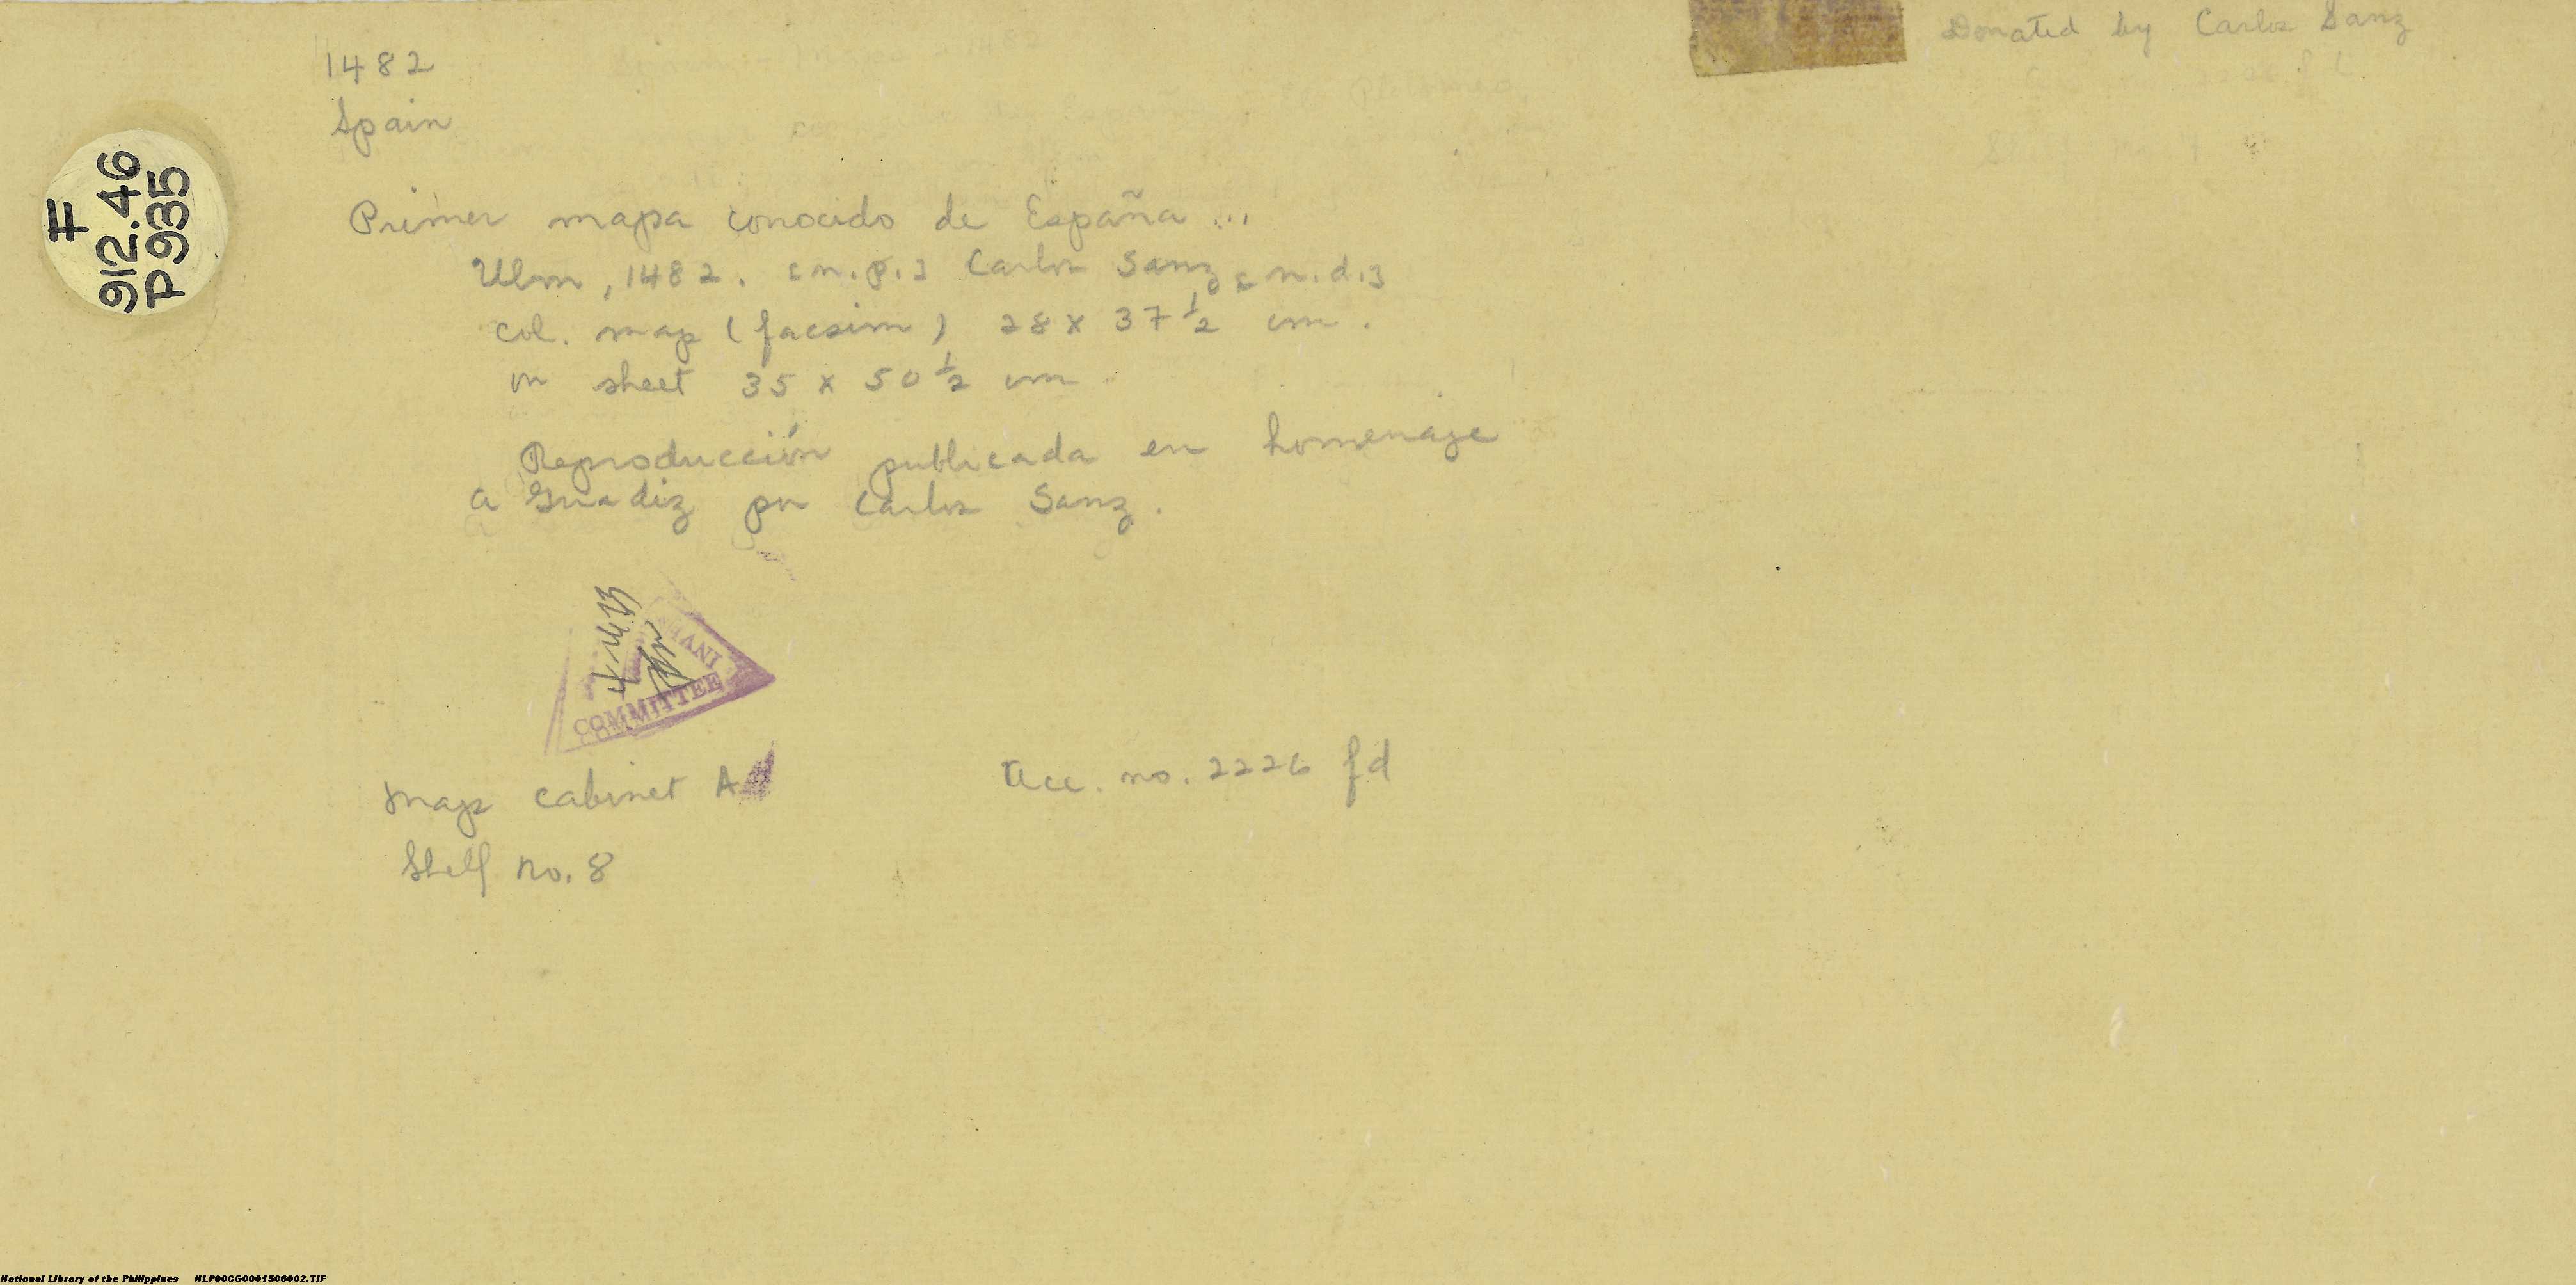 Donated by Carlos Sanz
1482
Spain
F
912.46
P935
Primer mapa conocido de España ...
Ulm, 1482. [n.p.] Carlos Sanz [n.d.]
col. map (facsim) 28 x 37 1/2 cm.
on sheet 35 x 50 1/2 cm
Reproducción publicada en homenaje
a Guadiz por Carlos Sanz.
COMMITTEE
Map cabinet A
Acc. no. 2226 fd
Shelf no. 8
National Library of the Philippines NLP00CG0001506002.TIF